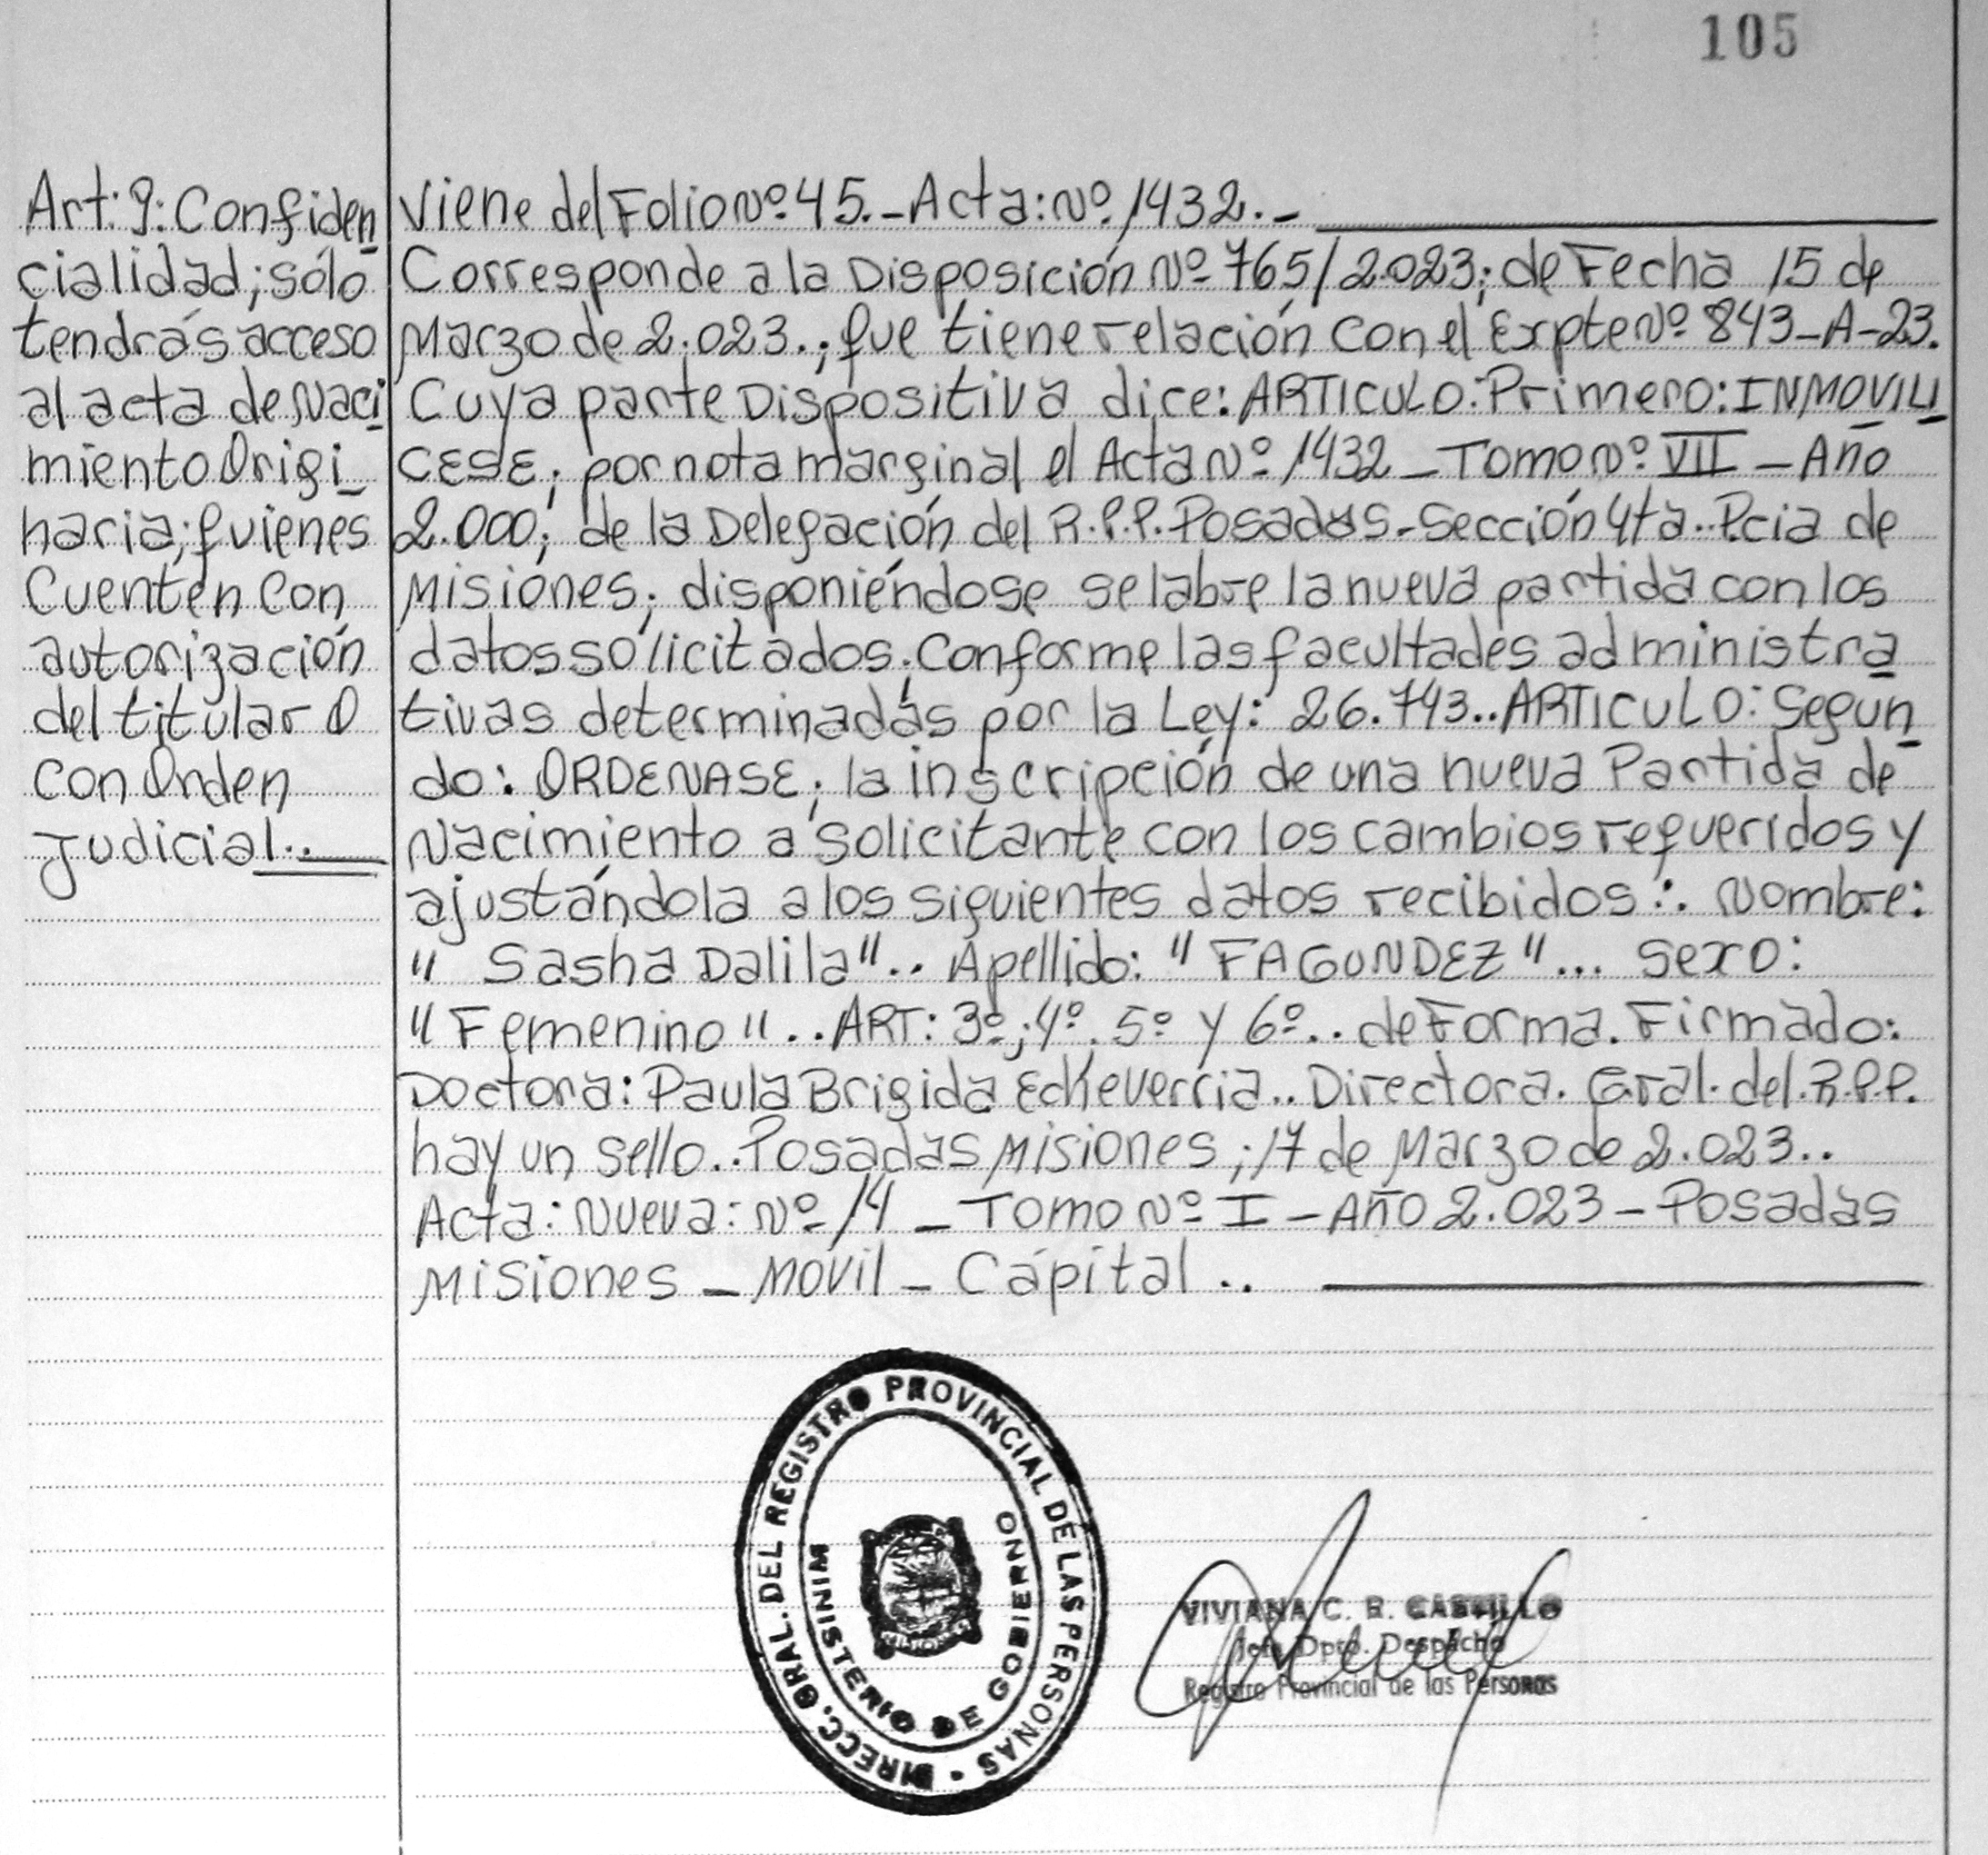 105
Art: 9: Confiden
cialidad; sólo
tendrás acceso
al acta de Naci
miento Origi_
naria; quienes
Cuenten Con
autorización
del titular O
con Orden
Judicial..
Viene del Folio Nº 45.- Acta: Nº 1432.-
Corresponde a la Disposición Nº 765/2.023; de Fecha 15 de
Marzo de 2.023.; que tiene relación con el Expte Nº 843-A-23.
Cuya parte Dispositiva dice: ARTICULO: Primero: INMOVILI
CESE; por nota marginal el Acta Nº 1432 - Tomo Nº VII - Año
2.000; de la Delegación del R.P.P. Posadas.- Sección 4ta.. Pcia de
Misiones; disponiéndose se labre la nueva partida con los
datos solicitados; Conforme las facultades administra
tivas determinadas por la Ley: 26.743.. ARTICULO: Segun
do: ORDENASE; la inscripción de una nueva Partida de
Nacimiento a solicitante con los cambios requeridos y
ajustándola a los siguientes datos recibidos:. Nombre:
" Sasha Dalila".. Apellido: "FAGUNDEZ"... Sexo:
"Femenino".. ART: 3º; 4º. 5º y 6º.. de Forma. Firmado:
Doctora: Paula Brigida Echeverria.. Directora. Gral. del. R.P.P.
hay un sello.. Posadas Misiones; 17 de Marzo de 2.023..
Acta: Nueva: Nº 14 - Tomo Nº I - Año 2.023 - Posadas
Misiones - Móvil - Cápital..
DIRECC. GRAL. DEL REGISTRO PROVINCIAL DE LAS PERSONAS
MINISTERIO DE GOBIERNO
MISIONES
VIVIANA C. R. CASTILLO
Jefe Dpto. Despacho
Registro Provincial de las Personas